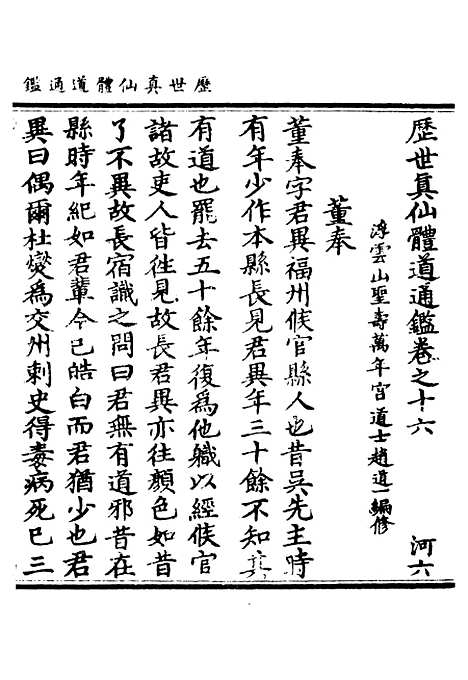 歷世真仙體道通鑑
歷世真仙體道通鑑卷之十六 河六
浮雲山聖壽萬年宮道士趙道一編修
董奉
董奉字君異福州候官縣人也昔吳先主時
有年少作本縣長見君異年三十餘不知其
有道也罷去五十餘年復為他職以經候官
諸故吏人皆往見故長君異亦往顏色如昔
了不異故長宿識之問曰君無有道邪昔在
縣時年紀如君輩今已皓白而君猶少也君
異曰偶爾杜燮為交州刺史得毒病死已三